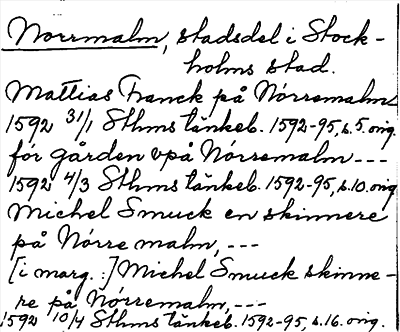 Norrmalm, stadsdel i Stock-
holms stad.
Mattias Franck på Nörremalm
1592 31/1 Sthms tänkeb. 1592-95, s. 5. orig.
för gården vpå Nörremalm ---
1592 4/3 Sthms tänkeb. 1592-95, s. 10. orig
Michel Smuck en skinnere
på Nörre malm, ---
[i marg. :] Michel Smuck skinne-
re på Nörremalm, ---
1592 10/4 Sthms tänkeb. 1592-95, s. 16. orig.